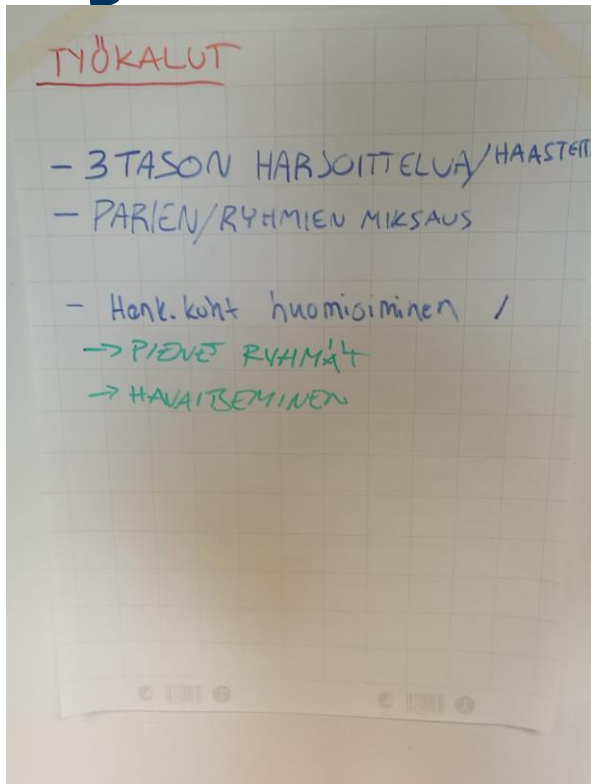 TYÖKALUT
- 3 TASON HARJOITTELUA/HAASTEIT
- PARIEN/RYHMIEN MIKSAUS
- Henk.koht huomioiminen /
→ PIENET RYHMÄT
→ HAVAITSEMINEN